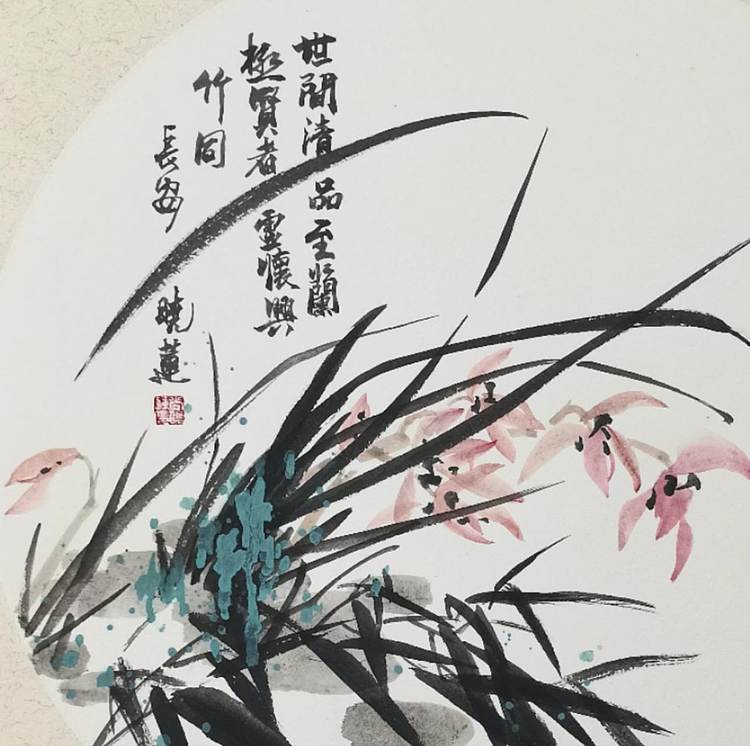 世間清品至蘭
極賢者虛懷與
竹同
長安 曉蓮